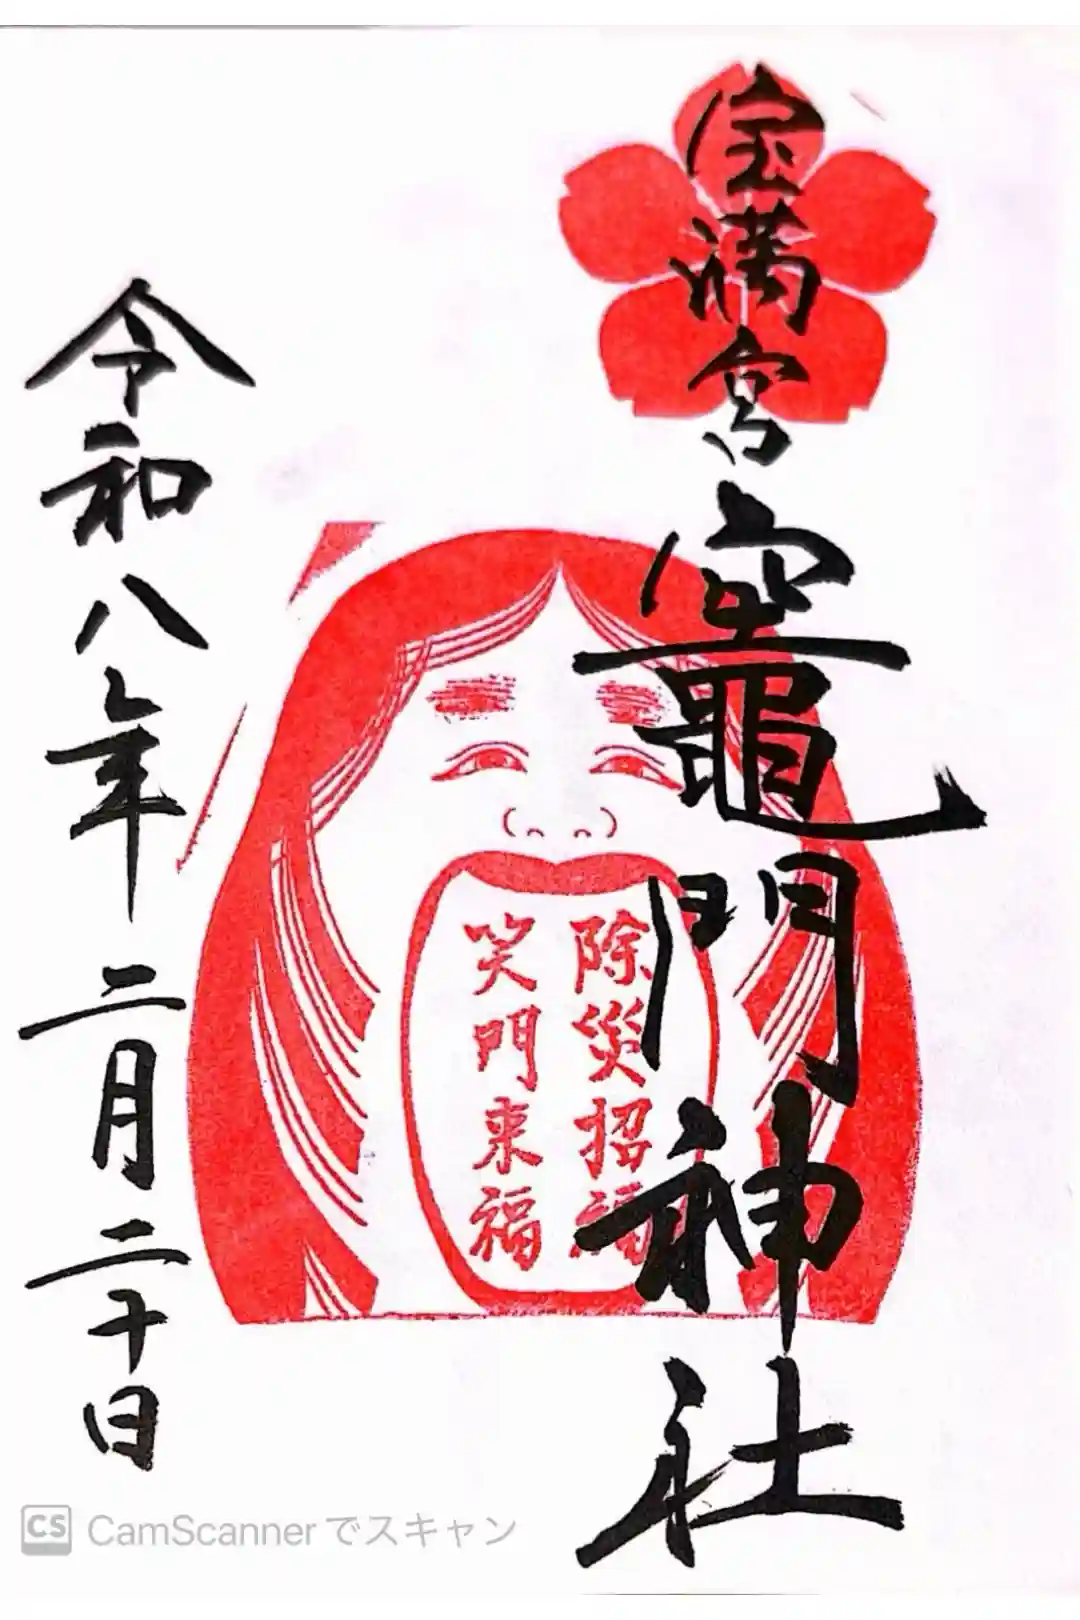 宝満宮
竈門神社
除災招福
笑門来福
令和八年二月二十日
CS CamScannerでスキャン